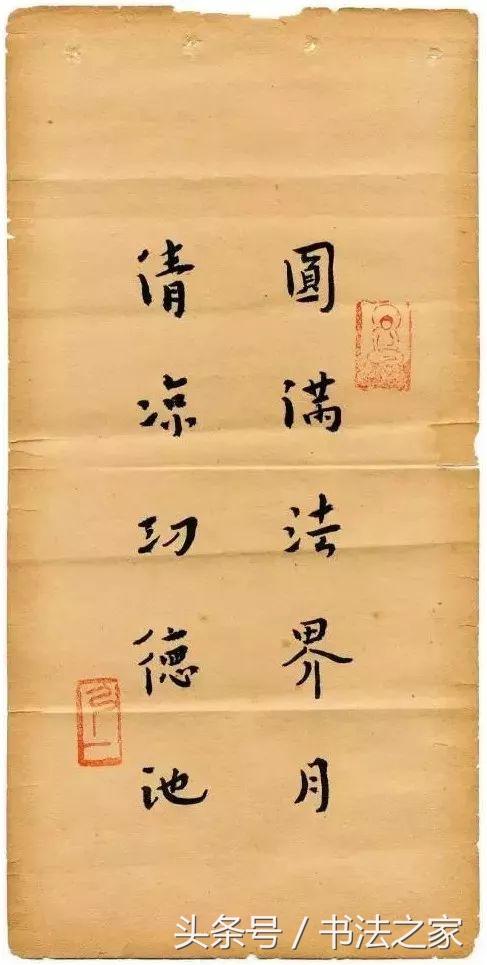 圓滿法界月
清凉功德池
头条号 / 书法之家